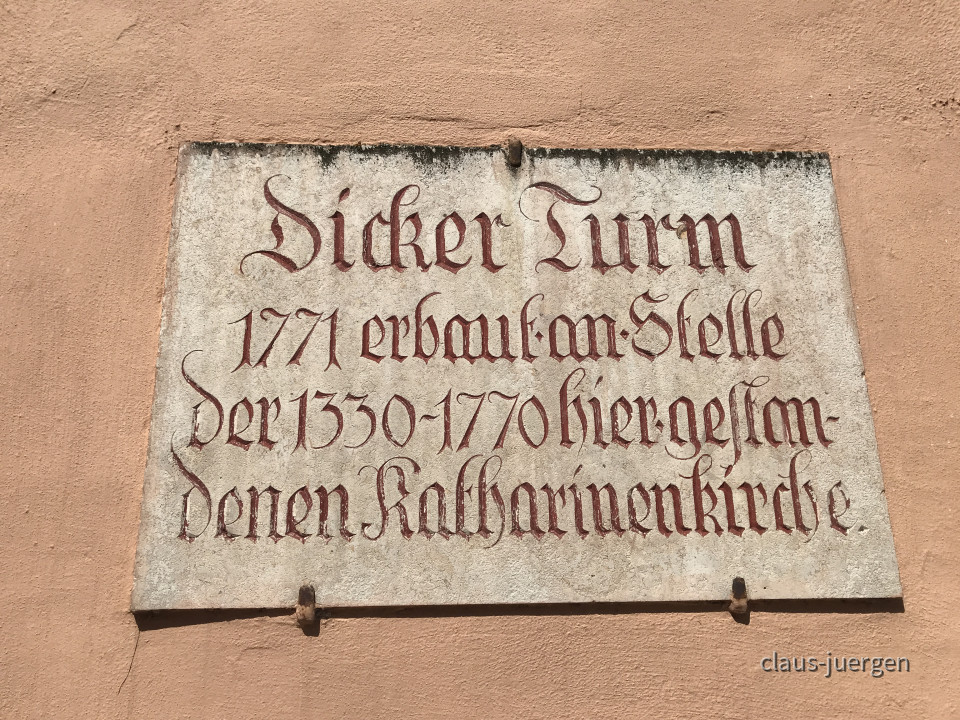 Dicker Turm
1771 erbaut·an·Stelle
der 1330-1770 hier·geſtan-
denen Katharinenkirche.
claus-juergen